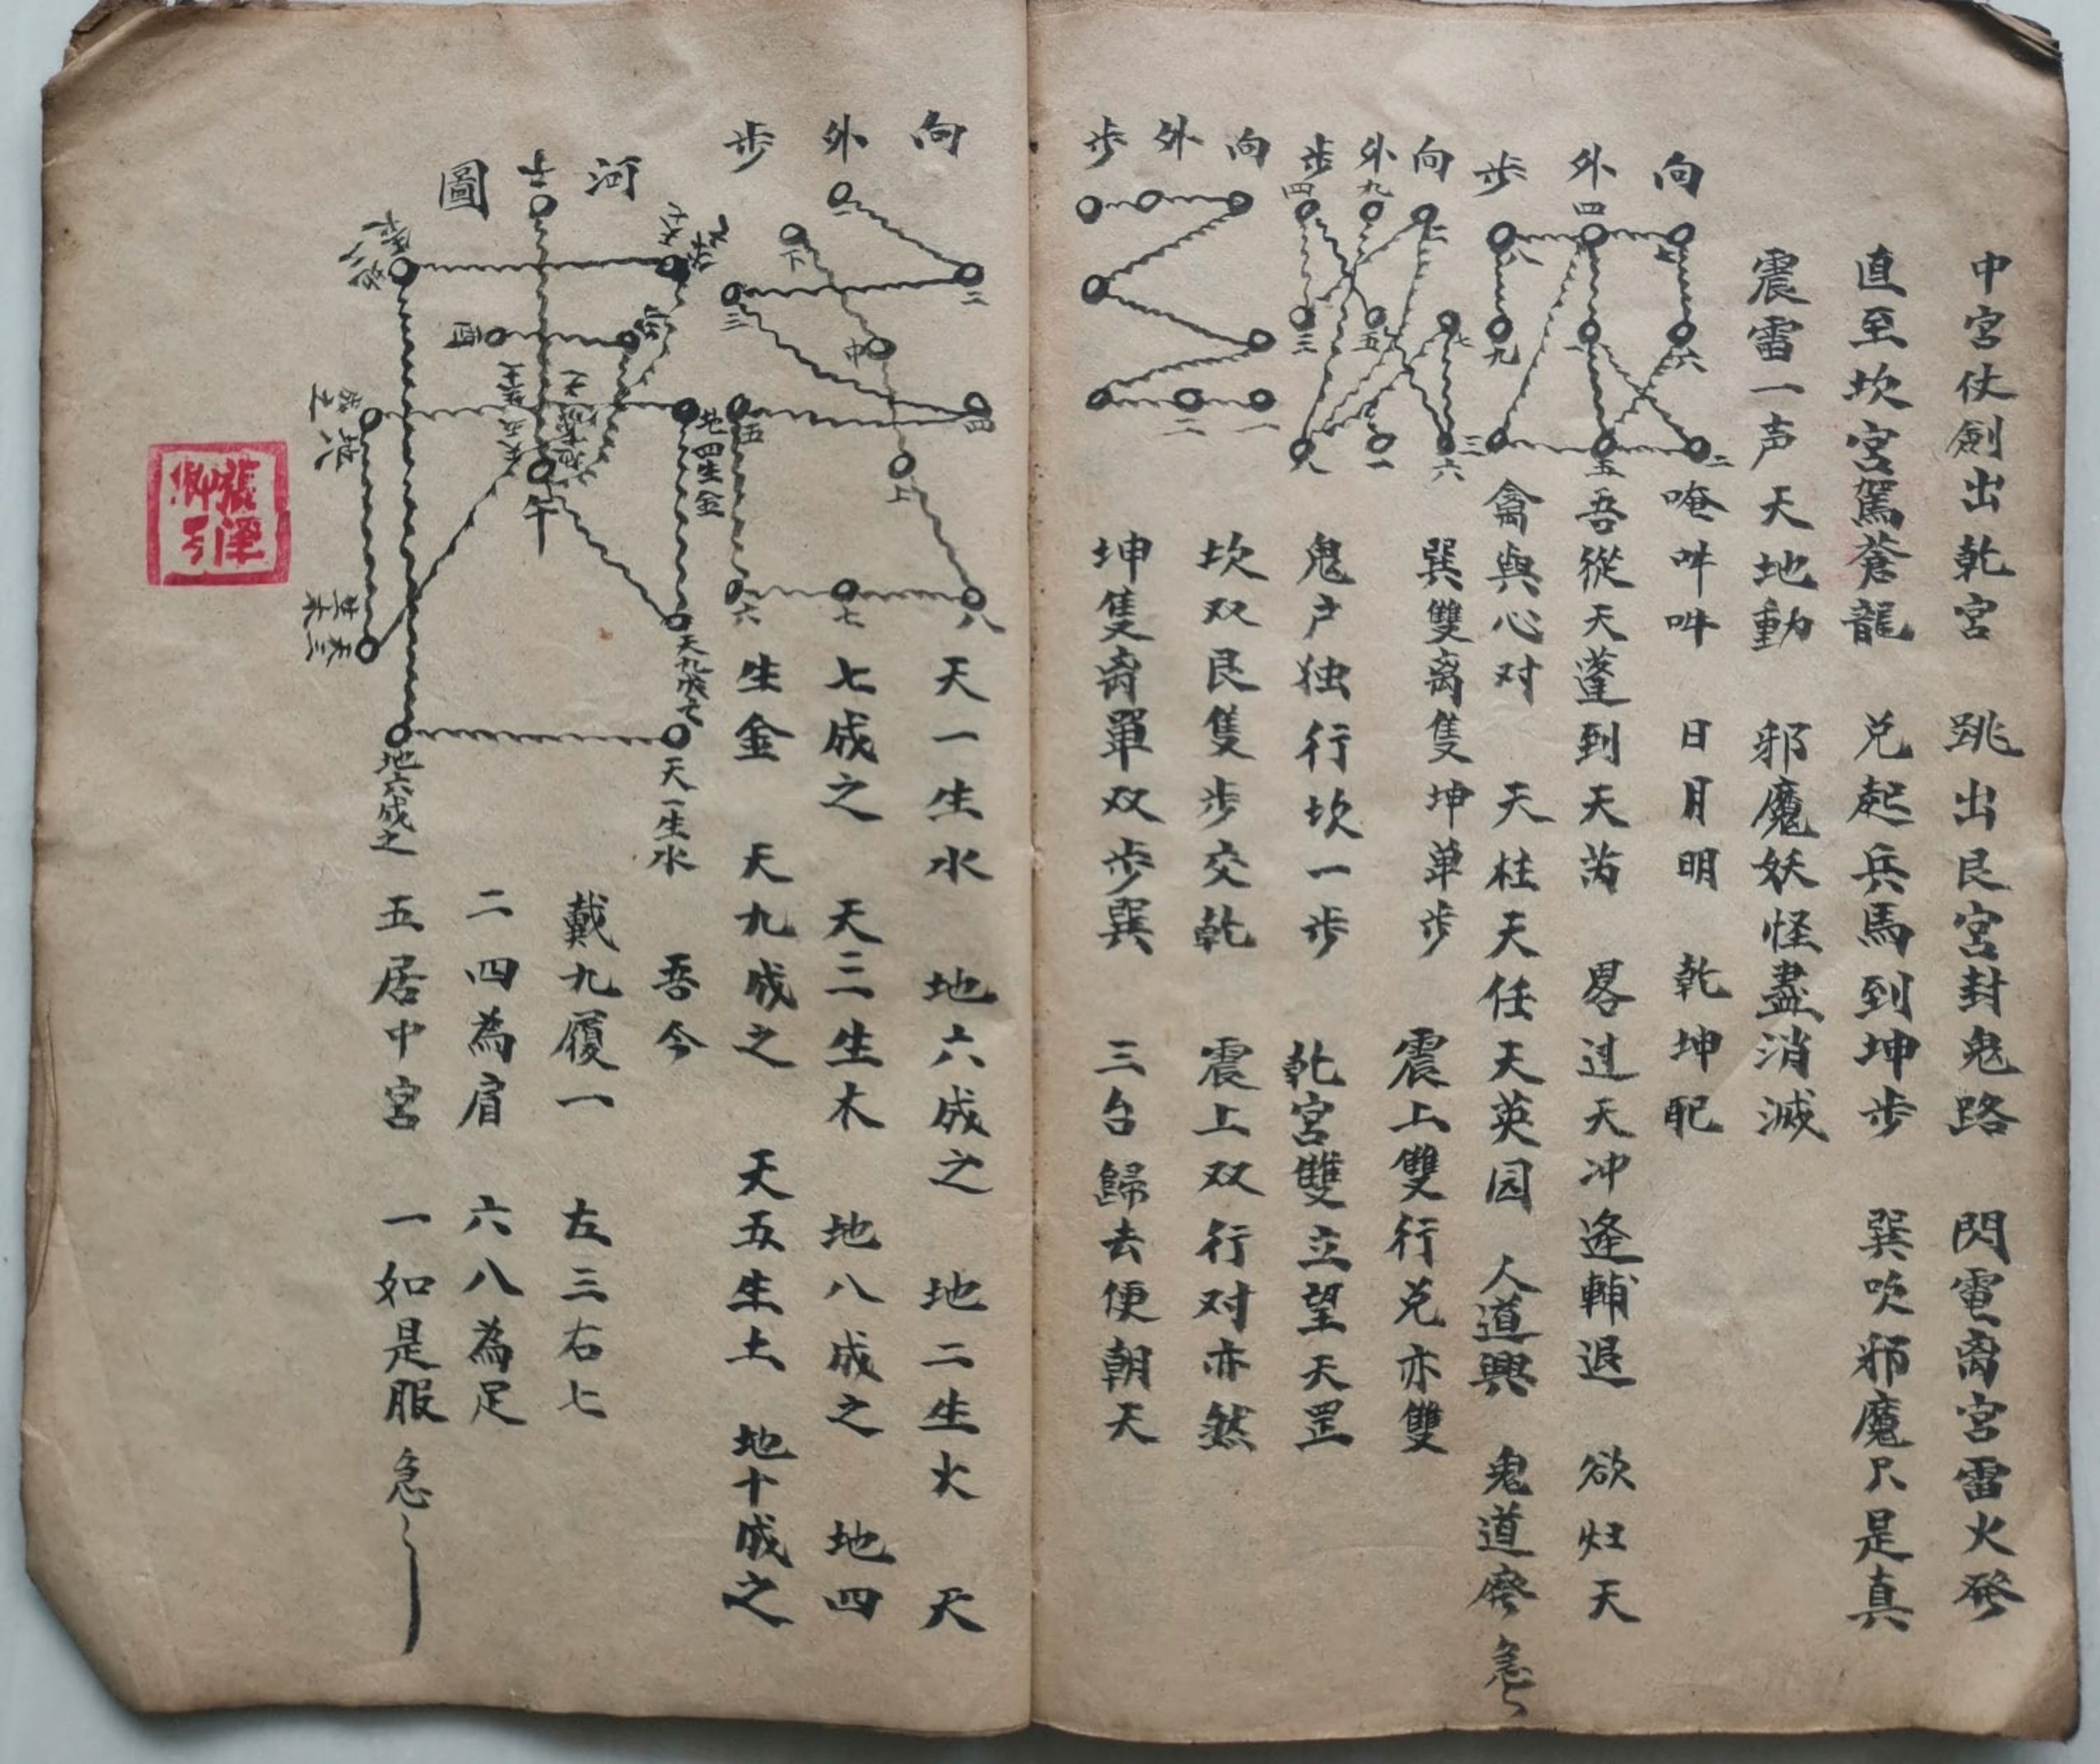 中宮仗劍出乾宮　跳出艮宮封鬼路　閃電离宮雷火發
直至坎宮駕蒼龍　兌起兵馬到坤步　巽吹邪魔只是真
震雷一声天地動　邪魔妖怪盡消滅
唵吽吽　日月明　乾坤配
向外步
四
六
九
三
五
二
吾從天蓬到天芮　畧过天冲逄輔退　欲灶天
禽與心对　天柱天任天英园　人道興　鬼道廢　急
向外步
四
九
二
三
五
七
八
一
六
巽雙离隻坤单步　震上雙行兌亦雙
鬼户独行坎一步　乾宮雙立望天罡
向外步
二
一
坎双艮隻步交乾　震上双行对亦然
坤隻离單双步巽　三台歸去便朝天
向外步
一
二
三
四
五
六
七
八
下
中
上
天一生水　地六成之　地二生火　天
七成之　天三生木　地八成之　地四
生金　天九成之　天五生土　地十成之
河圖
酉
午
地四生金
天九成之
天一生水
地六成之
吾今
戴九履一　左三右七
二四為肩　六八為足
五居中宮　一如是服　急